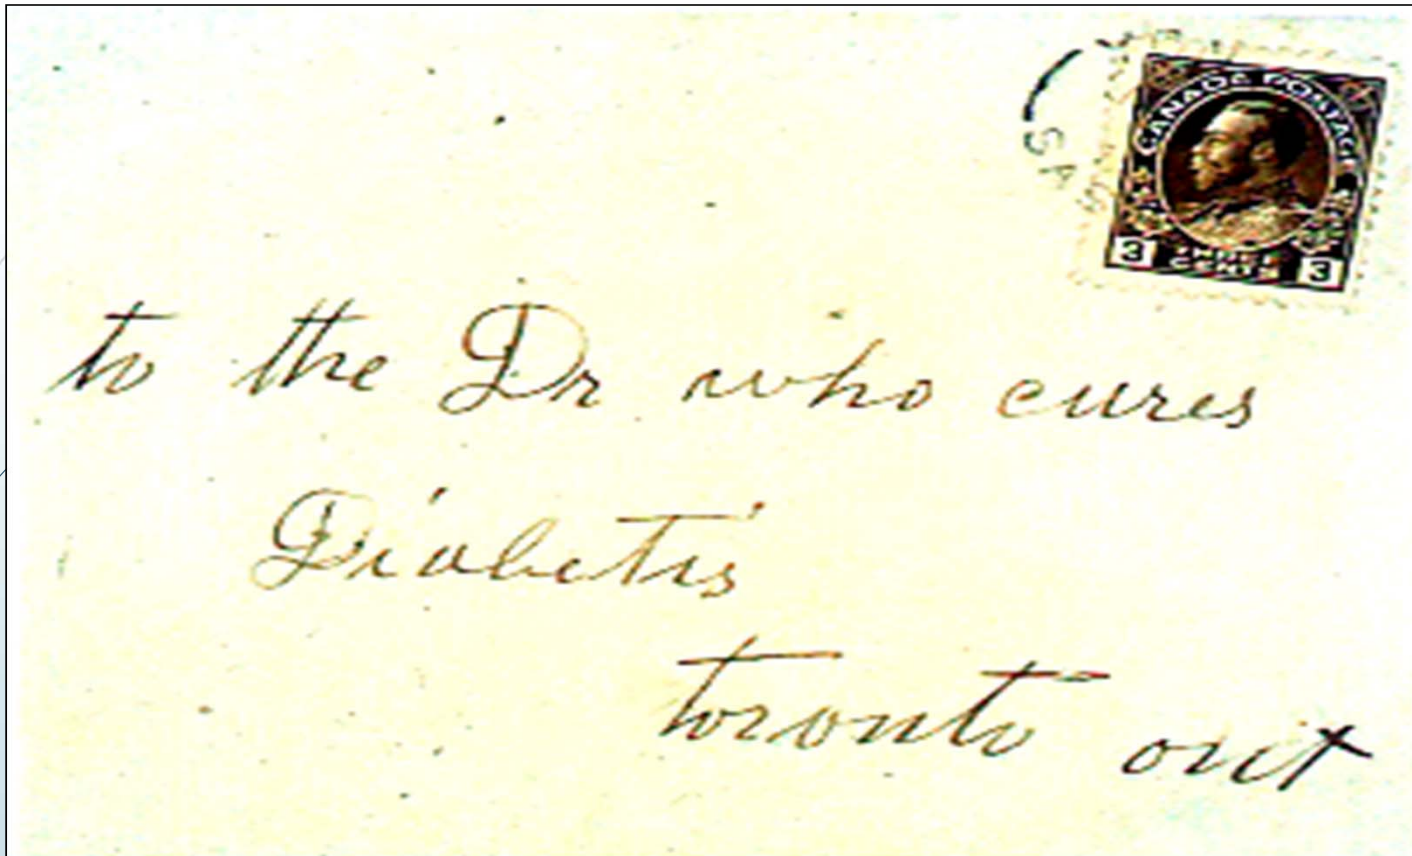 SA
CANADA POSTAGE
3 THREE CENTS 3
to the Dr who cures
Diabetis
toronto ont